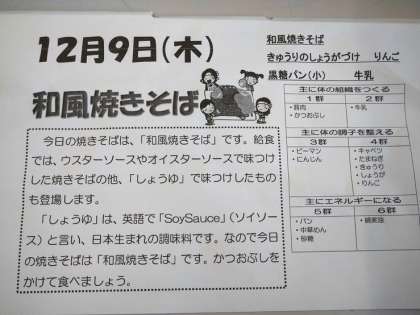 12月9日(木)
和風焼きそば
和風焼きそば
きゅうりのしょうがづけ りんご
黒糖パン(小) 牛乳
今日の焼きそばは、「和風焼きそば」です。給食
では、ウスターソースやオイスターソースで味つけ
した焼きそばの他、「しょうゆ」で味つけしたもの
も登場します。
「しょうゆ」は、英語で「SoySauce」(ソイソー
ス)と言い、日本生まれの調味料です。なので今日
の焼きそばは「和風焼きそば」です。かつおぶしを
かけて食べましょう。
主に体の組織をつくる
1群 2群
・豚肉 ・牛乳
・かつおぶし
主に体の調子を整える
3群 4群
・ピーマン ・キャベツ
・にんじん ・たまねぎ
・きゅうり
・しょうが
・りんご
主にエネルギーになる
5群 6群
・パン
・中華めん
・砂糖